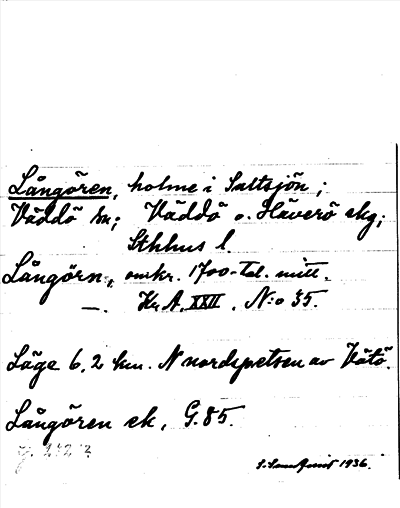 Långören, holme i Saltsjön;
Väddö sn; Väddö o. Häverö skg;
Sthlms l.
Långörn, omkr. 1700-tal. mitt.
—. Kr. A. XXII, N:o 35.
Läge 6,2 km. N nordspetsen av Vätö.
Långören ek, G. 85.
1936.